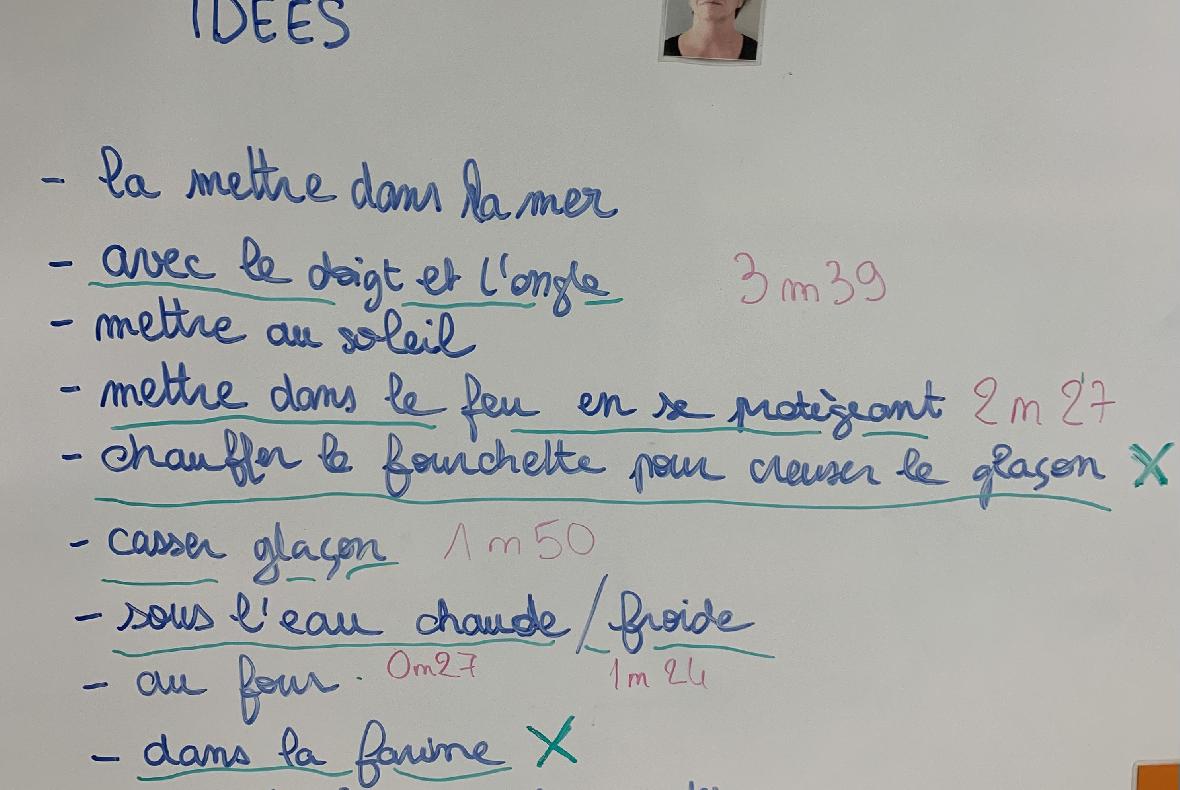 IDEES
- la mettre dans la mer
- avec le doigt et l'ongle 3 m 39
- mettre au soleil
- mettre dans le feu en se protègeant 2 m 27
- chauffer la fourchette pour creuser le glaçon X
- casser glaçon 1 m 50
- sous l'eau chaude / froide
0m27 1m 24
- au four.
- dans la farine X